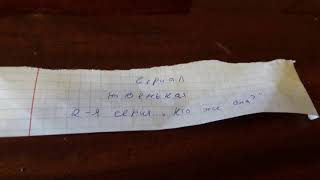 Сериал
2-я серия. "Кто же она?"